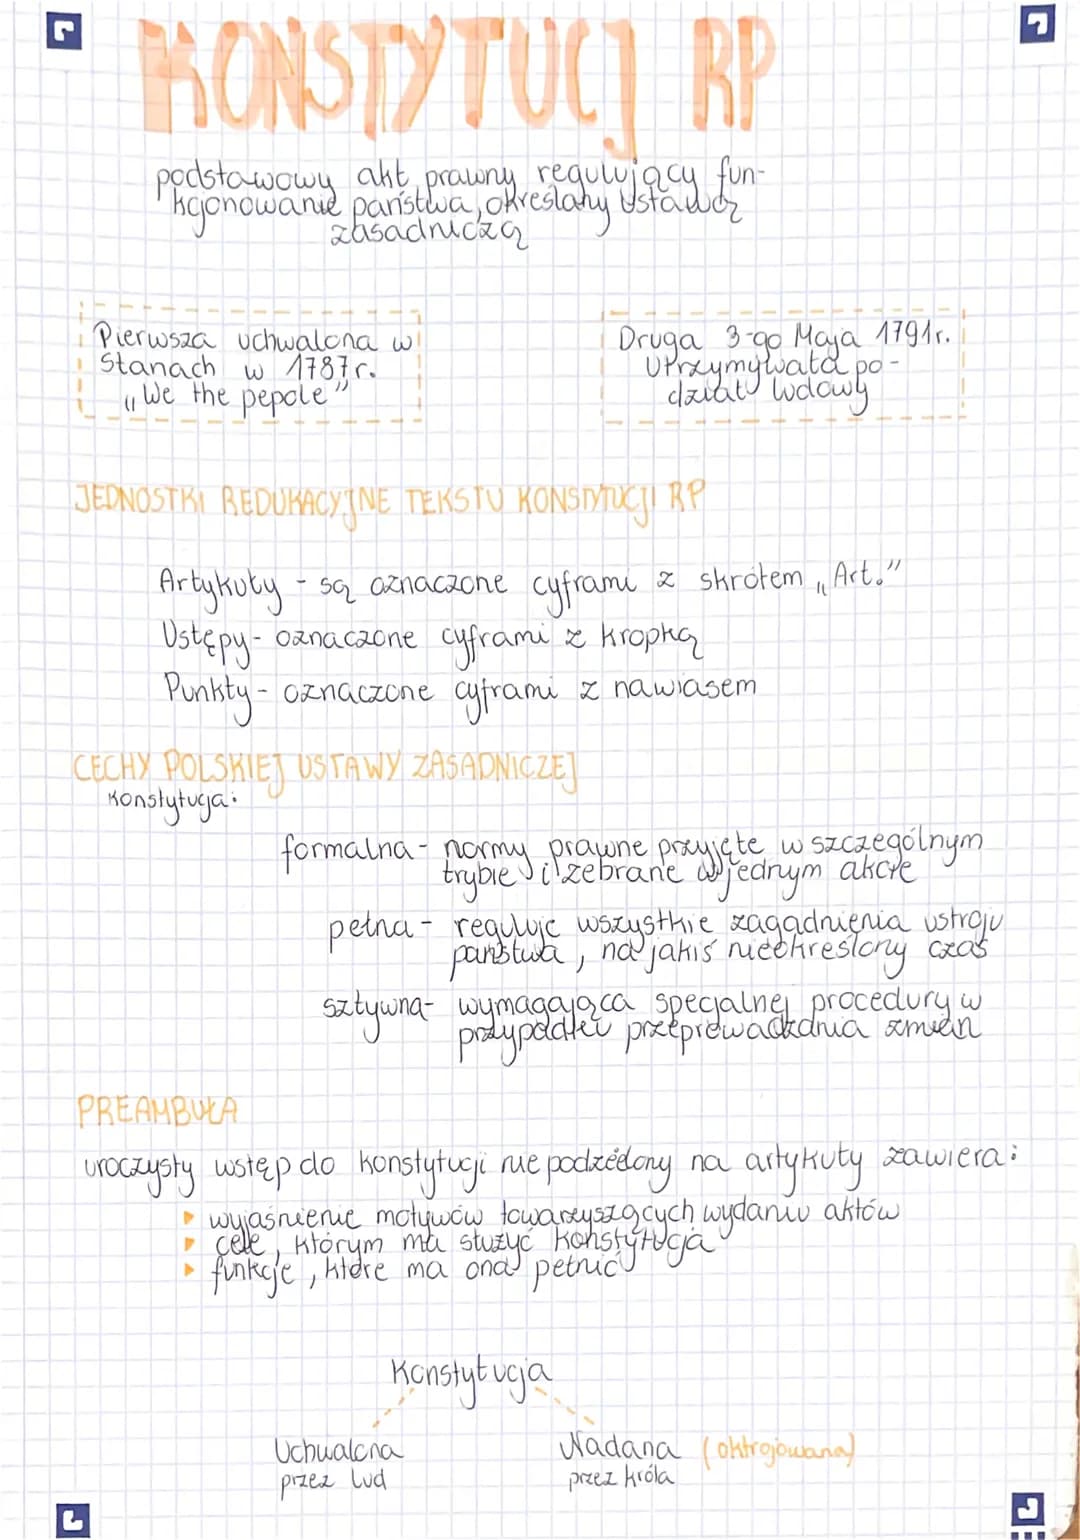 KONSTYTUCJ RP
podstawowy akt prawny regulujący fun-
kcjonowanie państwa, określany Ustawą
zasadniczą
Pierwsza uchwalona w
Stanach w 1787r.
„We the pepole"
Druga 3-go Maja 1791r.
Utrzymywała po-
dział ludowy
JEDNOSTKI REDUKACYJNE TEKSTU KONSTYTUCJI RP
Artykuły - są oznaczone cyframi z skrótem „Art."
Ustępy - oznaczone cyframi z kropką
Punkty - oznaczone cyframi z nawiasem
CECHY POLSKIEJ USTAWY ZASADNICZEJ
Konstytucja:
formalna - normy prawne przyjęte w szczególnym
trybie i zebrane w jednym akcie
pełna - reguluje wszystkie zagadnienia ustroju
państwa, na jakiś nieokreślony czas
sztywna - wymagająca specjalnej procedury w
przypadku przeprowadzania zmian
PREAMBUŁA
uroczysty wstęp do konstytucji nie podzielony na artykuły zawiera:
wyjaśnienie motywów towarzyszących wydaniu aktów
cele, którym ma służyć konstytucja
funkcje, które ma ona pełnić
Konstytucja
Uchwalona
przez lud
Nadana (oktrojowana)
przez króla